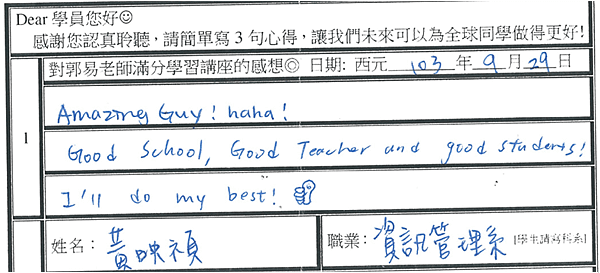 Dear 學員您好☺
感謝您認真聆聽，請簡單寫 3 句心得，讓我們未來可以為全球同學做得更好!
對郭易老師滿分學習講座的感想◎ 日期: 西元 103 年 9 月 29 日
1
Amazing Guy! haha!
Good School, Good Teacher and good students!
I'll do my best!
姓名： 黃映禎
職業： 資訊管理系 [學生請寫科系]